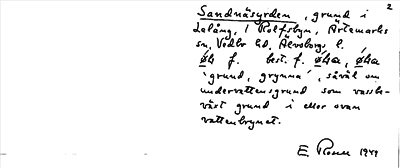 2
Sandnäsyrden, grund i
Lelång, i Rolfsbyn, Ärtemarks
sn, Vedbo hd, Älvsborgs l.
f. best. f.
'grund, grynna', såväl om
undervattensgrund som vassbe-
växt grund i eller ovan
vattenbrynet.
E 1949